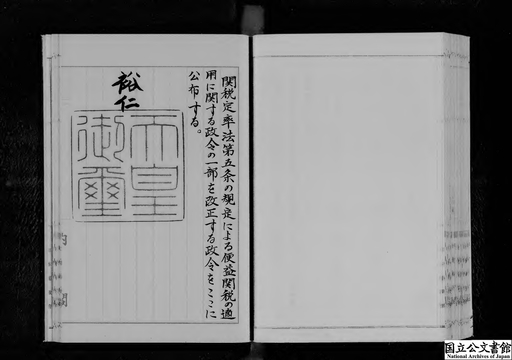 関税定率法第五条の規定による便益関税の適
用に関する政令の一部を改正する政令をここに
公布する。
裕仁
天皇
御璽
内閣
国立公文書館
National Archives of Japan